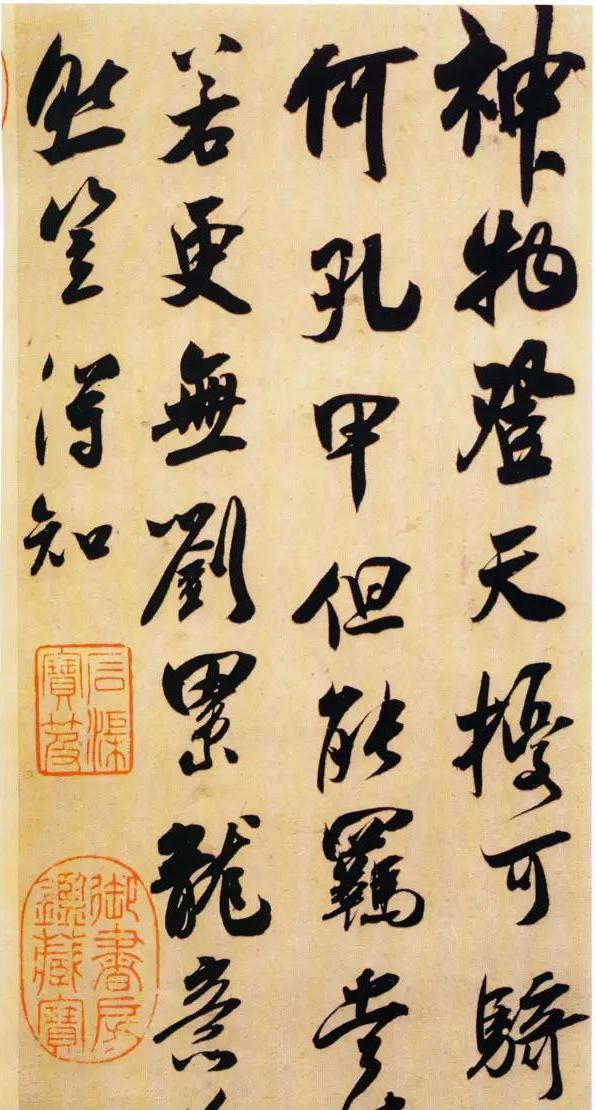 神物登天擾可騎
何孔甲但能羈當
若更無劉累龍意
然豈得知
石渠
寶笈
御書房
鑑藏寶